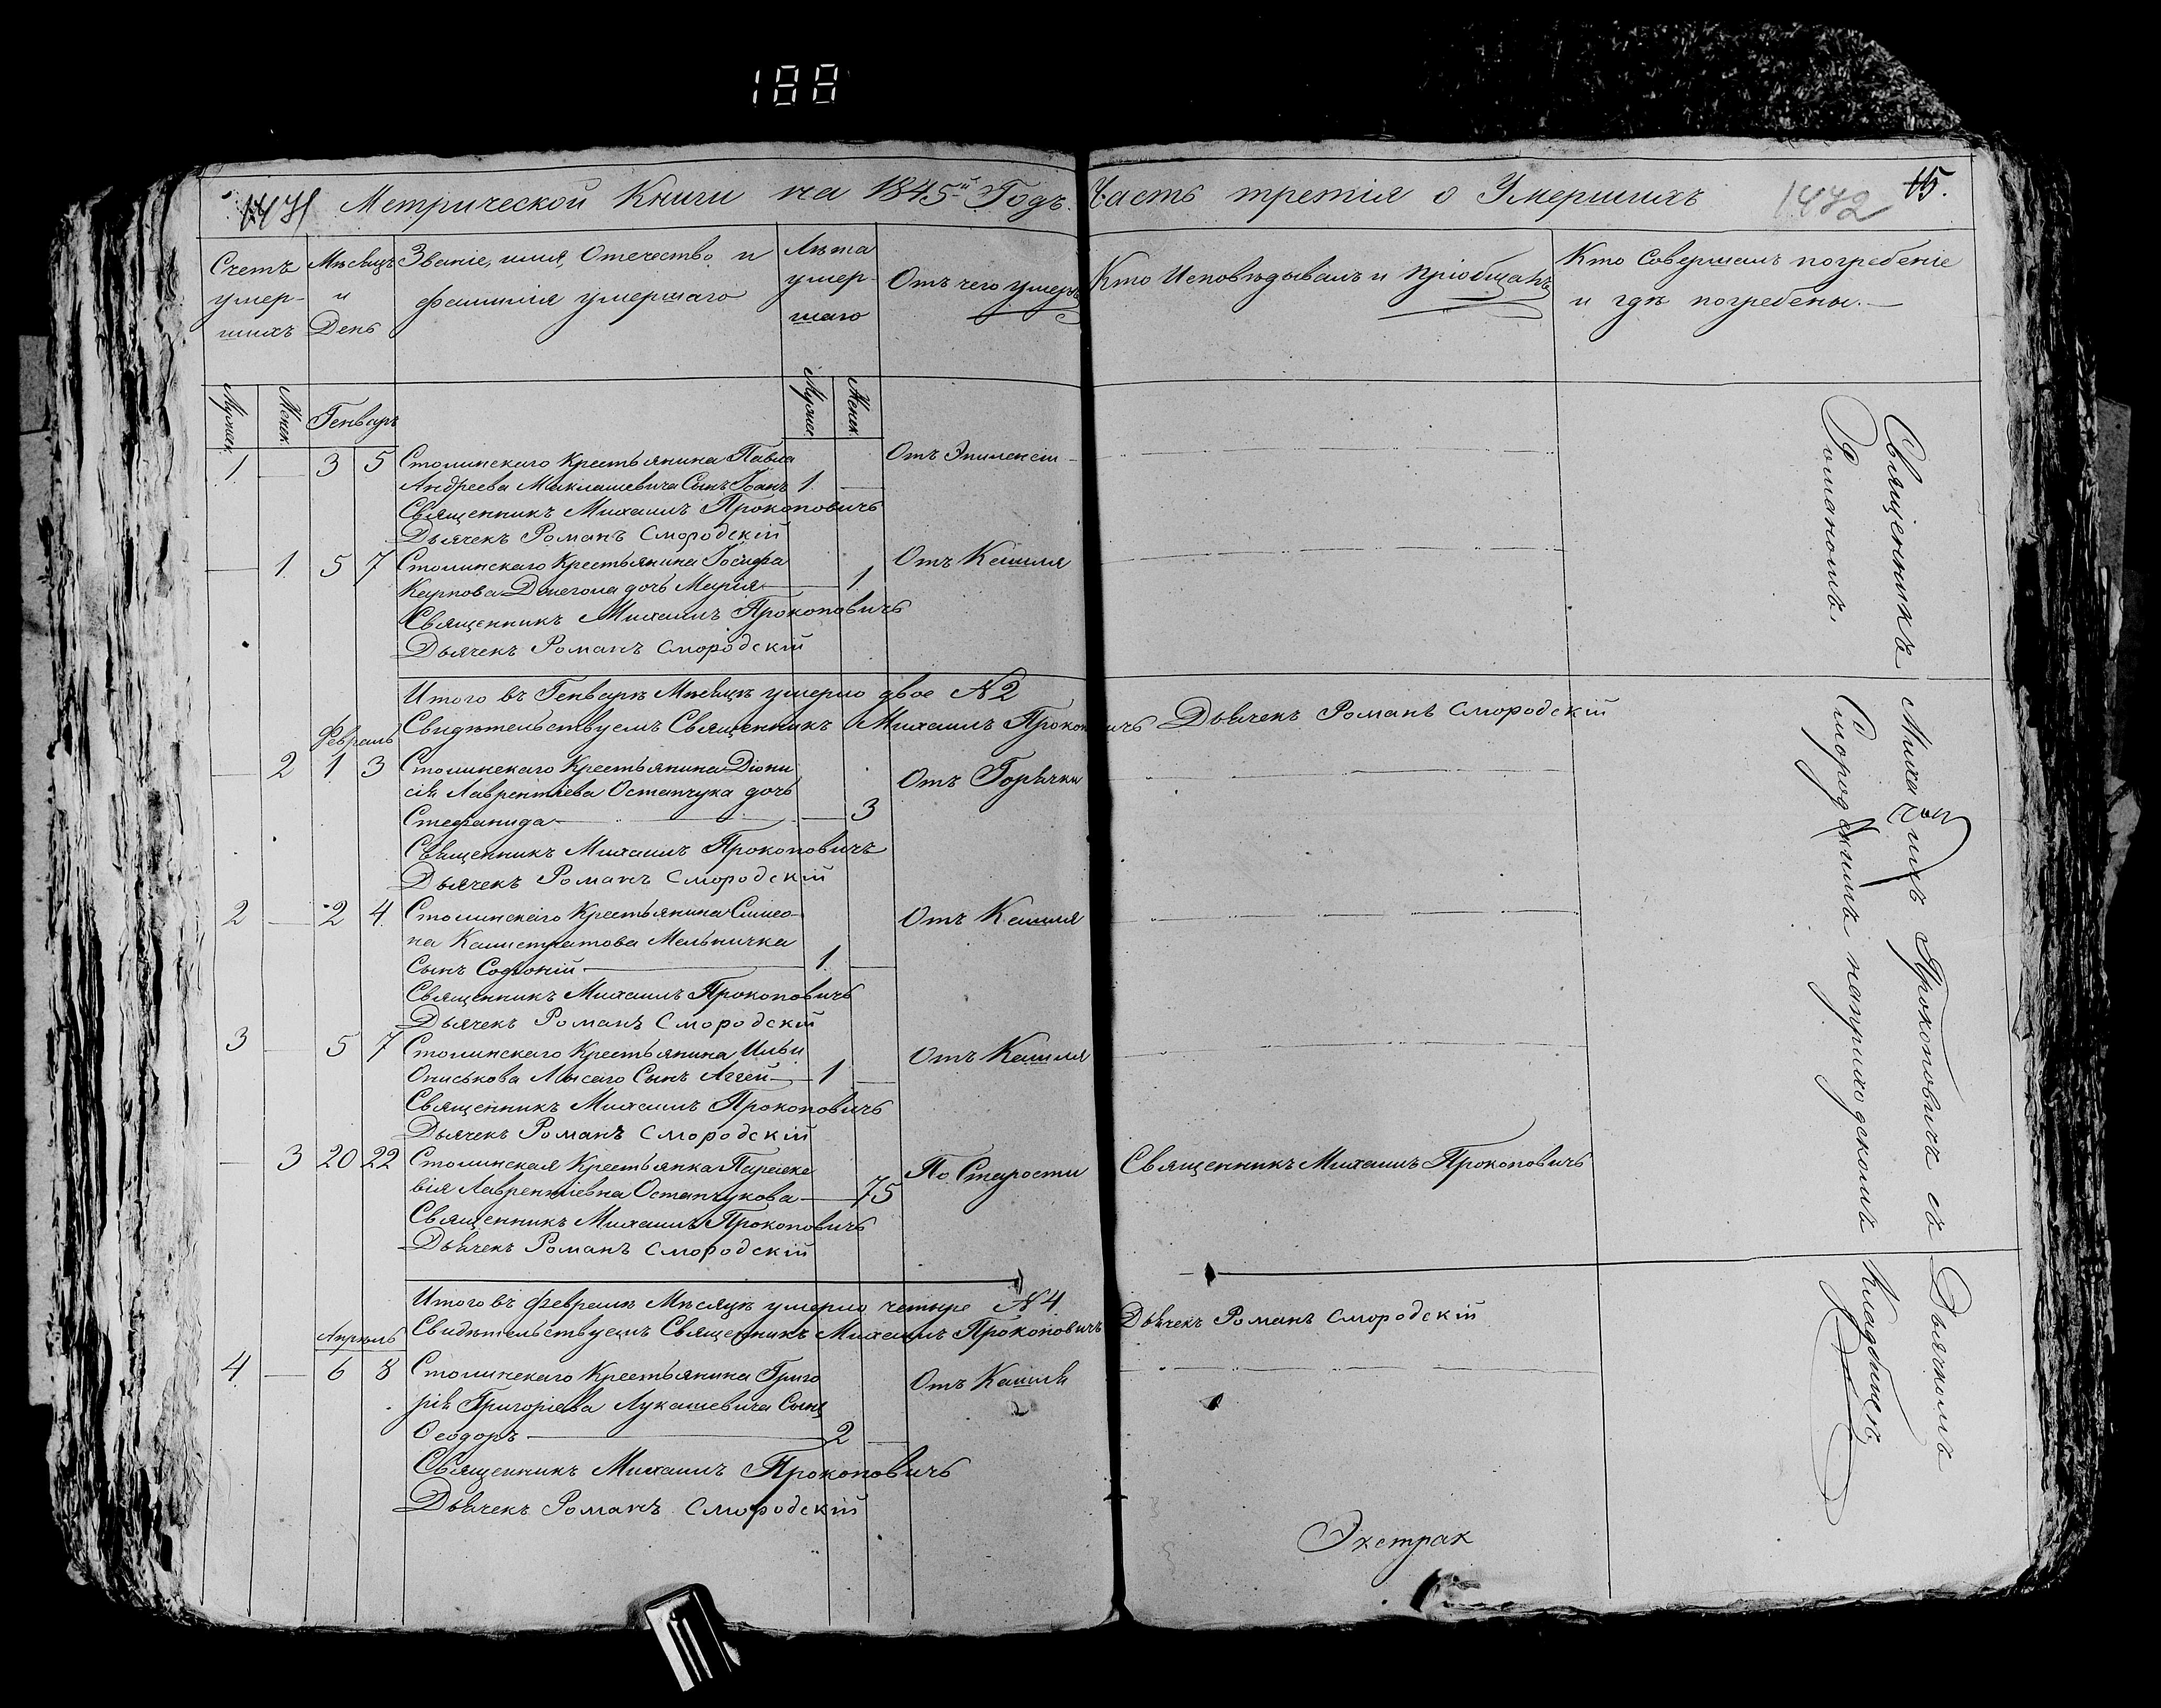 188
1471 Метрической Книги на 1845й Годъ. Часть третія о Умершихъ 1472 15.
Счетъ умер- шихъ
Мѣсяцъ и День
Званіе, имя, Отечество и
фамилія умершаго
Лѣта умер- шаго
Отъ чего умеръ
Кто Исповѣдывалъ и пріобщалъ
Кто Совершалъ погребеніе
и гдѣ погребены.
Мужеск. Женск. Генварь Мужес. Женск.
1 — 3 5 Столинскаго Крестьянина Павла Отъ Эпилепсіи
Андреева Миклашевича Сынъ Іоанъ 1 —
Священникъ Михаилъ Прокоповичъ
Дьячекъ Романъ Смородскій
— 1 5 7 Столинскаго Крестьянина Іосифа Отъ Кашля
Карпова Дмегона дочь Марія — 1
Священникъ Михаилъ Прокоповичъ
Дьячекъ Романъ Смородскій
Итого въ Генварѣ Мѣсяцѣ умерло двое № 2
Свидѣтельствуемъ Священникъ Михаилъ Прокоповичъ Дьячекъ Романъ Смородскій
Февраль
— 2 1 3 Столинскаго Крестьянина Діони Отъ Горячки
сія Лаврентіева Остапчука дочь
Стефанида — 3
Священникъ Михаилъ Прокоповичъ
Дьячекъ Романъ Смородскій
2 — 2 4 Столинскаго Крестьянина Симео- Отъ Кашля
на Калистратова Мельничка
Сынъ Софроній — 1 —
Священникъ Михаилъ Прокоповичъ
Дьячекъ Романъ Смородскій
3 — 5 7 Столинскаго Крестьянина Ильи Отъ Кашля
Ониськова Лысаго Сынъ Аггей — 1 —
Священникъ Михаилъ Прокоповичъ
Дьячекъ Романъ Смородскій
— 3 20 22 Столинская Крестьянка Параске По Старости Священникъ Михаилъ Прокоповичъ
вія Лаврентіевна Остапчукова — 75
Священникъ Михаилъ Прокоповичъ
Дьячекъ Романъ Смородскій
Итого въ Февралѣ Мѣсяцѣ умерло четыре № 4
Свидѣтельствуемъ Священникъ Михаилъ Прокоповичъ Дьячекъ Романъ Смородскій
Апрѣль
4 — 6 8 Столинскаго Крестьянина Григо Отъ Кашля
рія Григоріева Лукашевича Сынъ
Ѳеодоръ — 2 —
Священникъ Михаилъ Прокоповичъ
Дьячекъ Романъ Смородскій
Экстрак
Священникъ Михаилъ Прокоповичъ съ Дьячкомъ
Романомъ Смородскимъ наприходскомъ Кладбищѣ